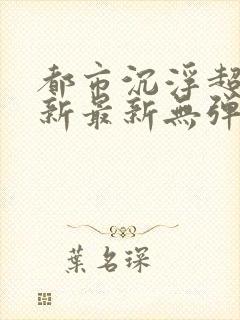 都市沉浮超
新最新無彈
葉名琛